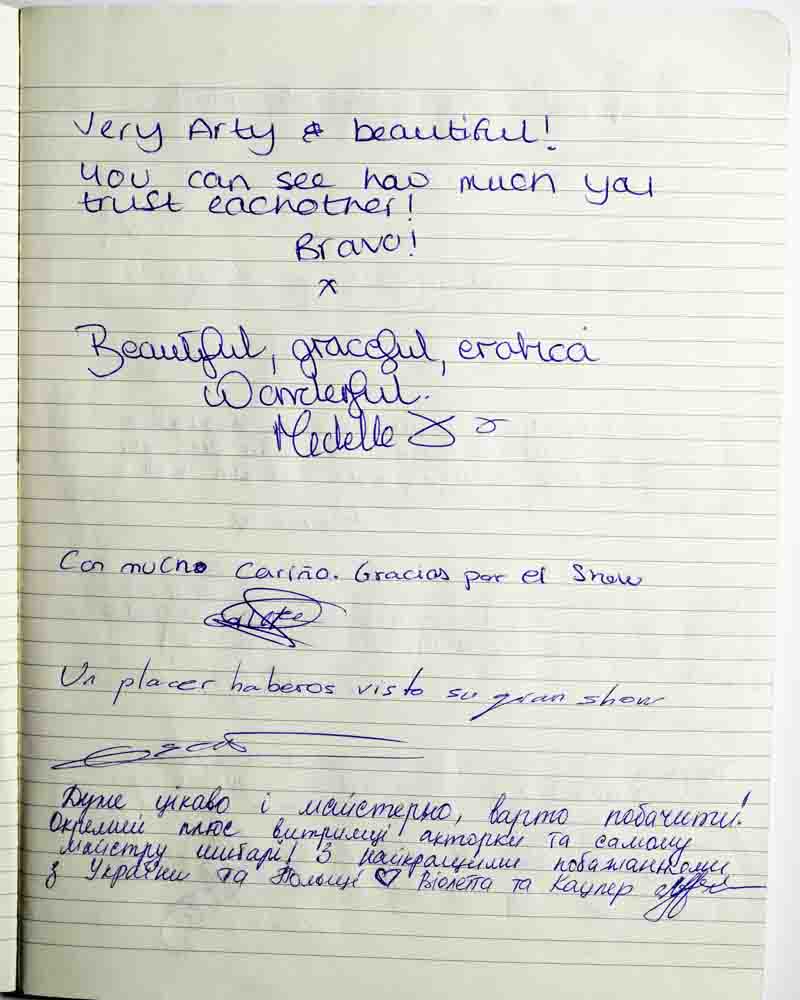 Very Arty & beautiful!
you can see how much you
trust eachother!
Bravo!
x
Beautiful, graceful, erotica
Wonderful.
Medelle
Con mucho cariño. Gracias por el Show
Un placer haberos visto su gran show
Дуже цікаво і майстерно, варто побачити!
Окремий плюс витримці акторки та самому
майстру шибарі! З найкращими побажаннями
з України та Польщі ♡ Віолетта та Кацпер